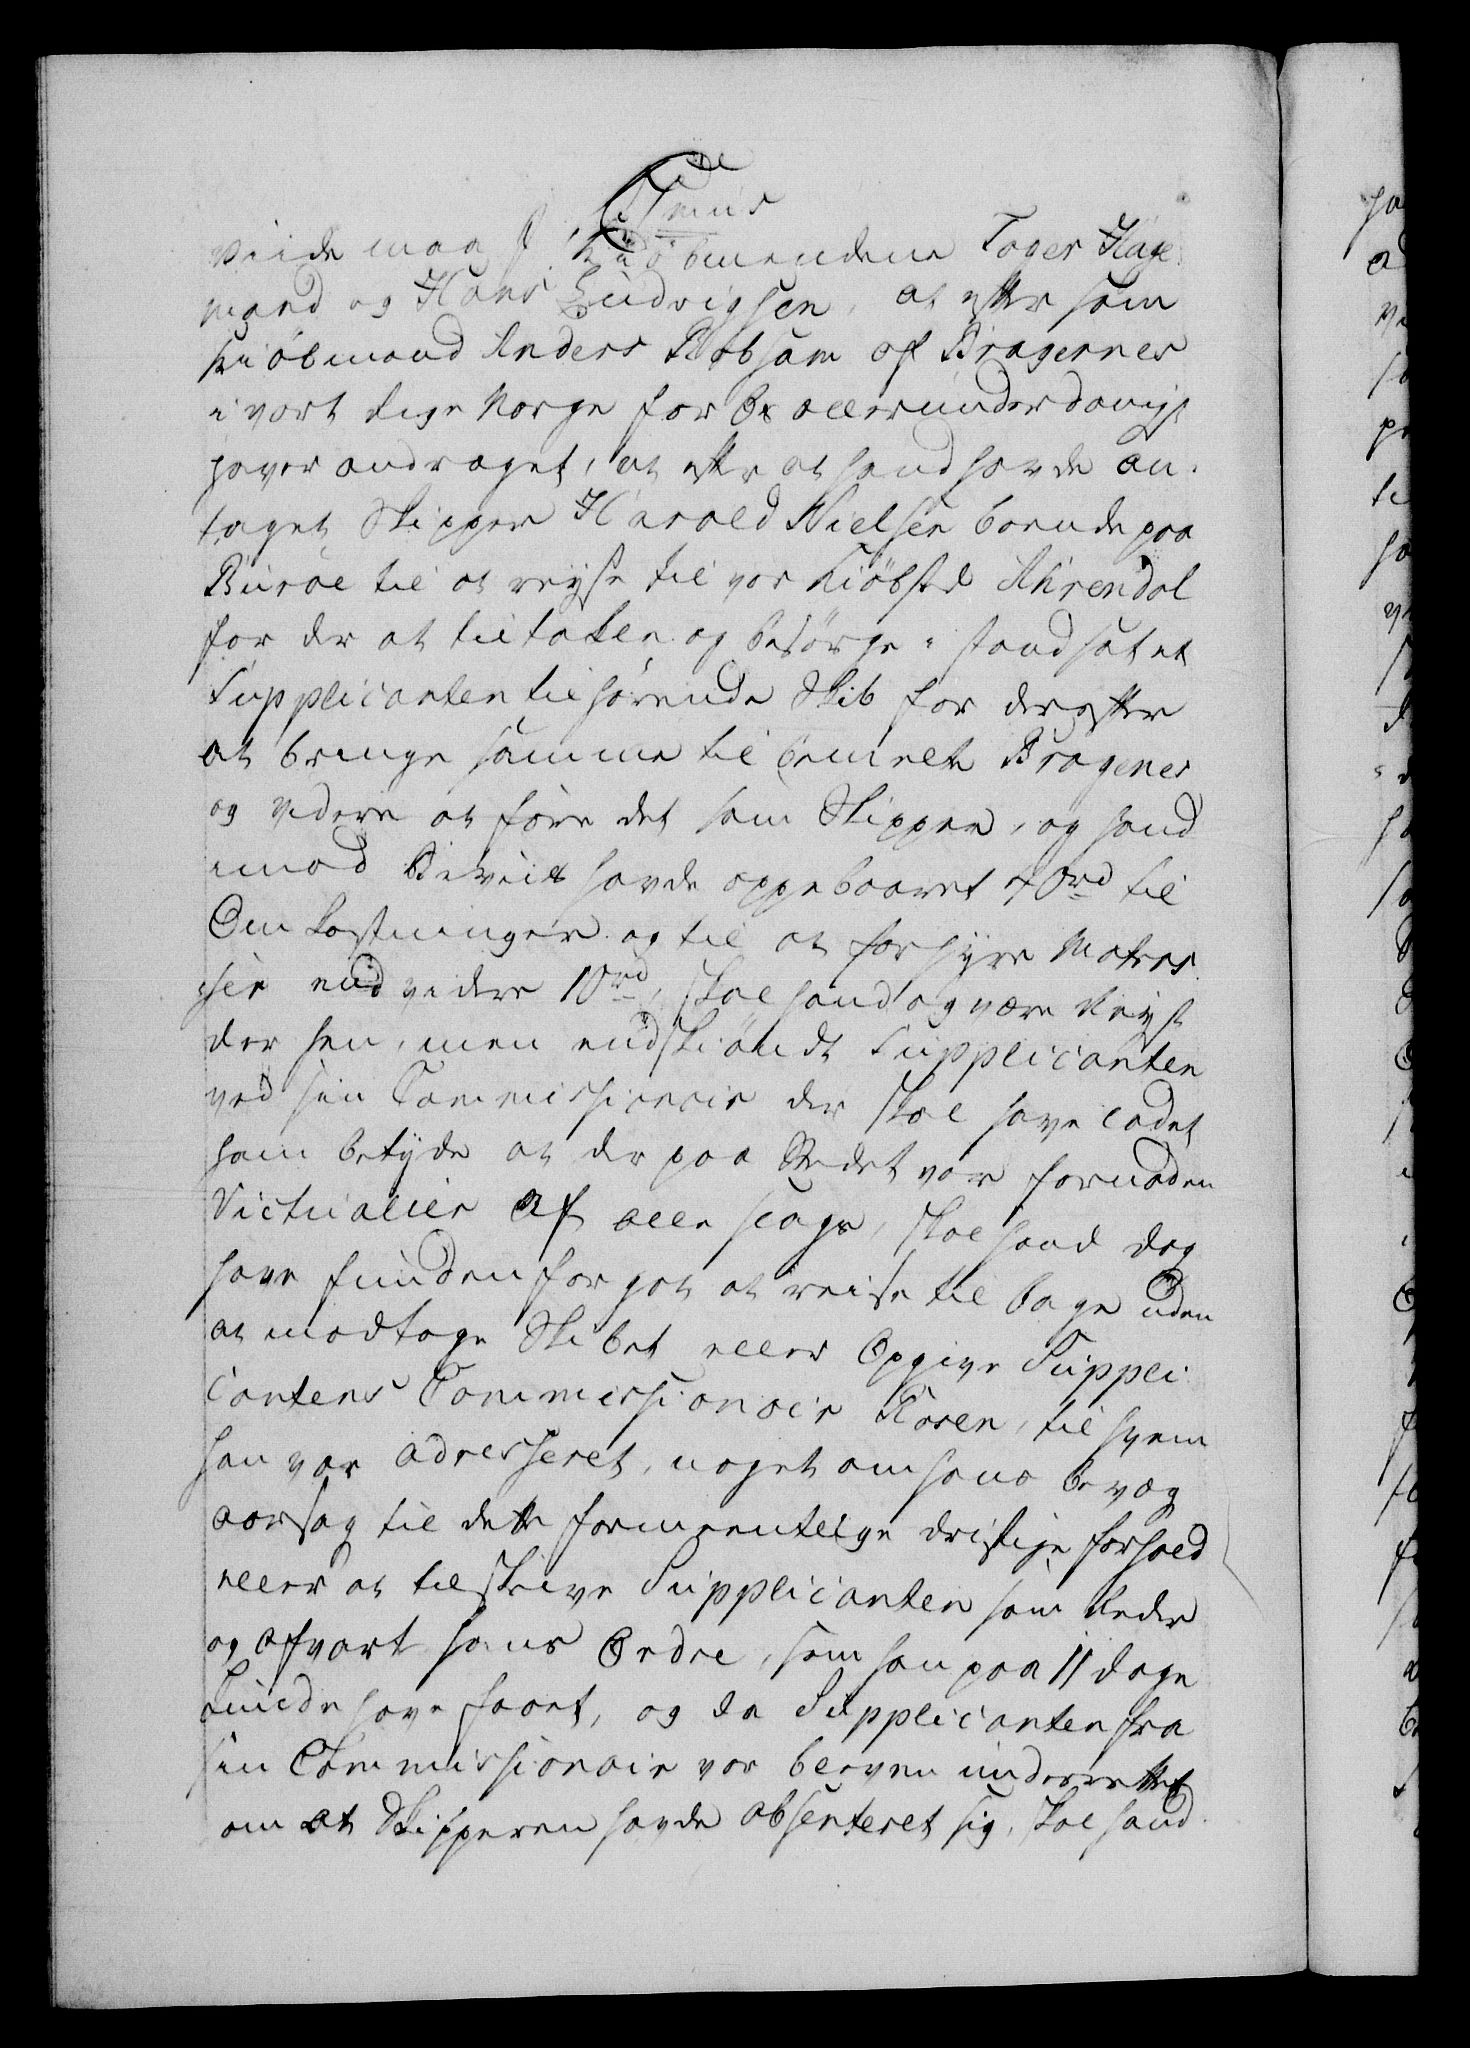 Viide maa I, Kiöbmendene Toger Hage
mand og Hans Ludvigsen, at efter som
Kiöbmand Anders Robsam af Bragernes
i vort Rige Norge for Os allerunderdanigst
haver andraget, at efter at hand havde an¬
taget Skipper Harald Nielsen boende paa
til at reyse til vor Kiöbsted Ahrendal
for der at tiltakle og besörge i stand sat et
Supplicanten tilhörende Skib for derefter
at bringe samme til bemelte Bragenes
og videre at före det som Skipper, og hand
imod Beviis havde oppebaaret 70 rd til
Omkostninger og til at forhyre Matros
ser end videre 10 rd, skal hand og være Reyst
der hen, men endskiöndt Supplicanten
ved sin Commissionair der skal have ladet
ham betyde at der paa Stedet var fornöden
Victualier af alle slags, skal hand dog
have funden for got at reise til bage uden
at modtage Skibet eller Opgive Suppli
cantens Commissionair til hvem
han var adresseret, noget om hans bevæg
aarsag til dette formeentlige dristige forhold
eller at tilskrive Supplicanten som Reder
og afvart hans Ordre, som han paa 11 dage
kunde have faaet, og da Supplicanten fra
sin Commissionair var bleven underrettet
om at Skipperen havde absenteret sig, skal hand